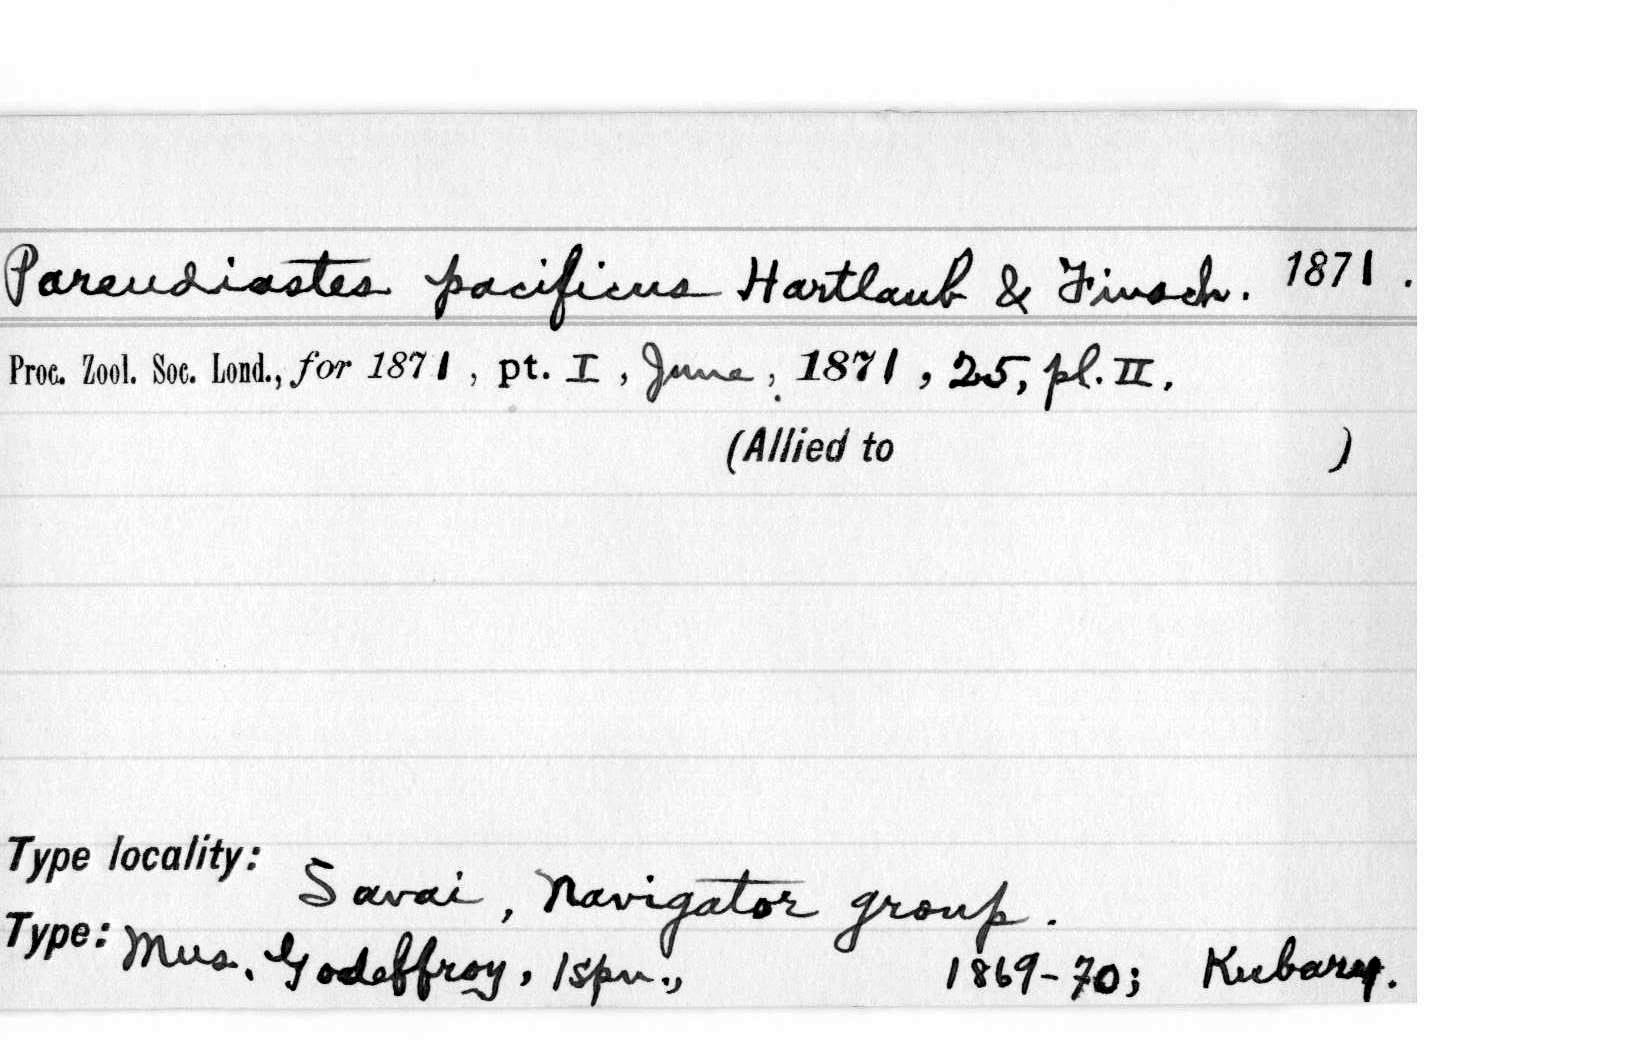 Pareudiastes pacificus Hartlaub & Finsch. 1871.
Proc. Zool. Soc. Lond., for 1871, pt. I, June, 1871, 25, pl. II.
(Allied to )
Type locality: Savai, Navigator group.
Type: Mus. Godeffroy, 1 spn., 1869-70; Kubary.